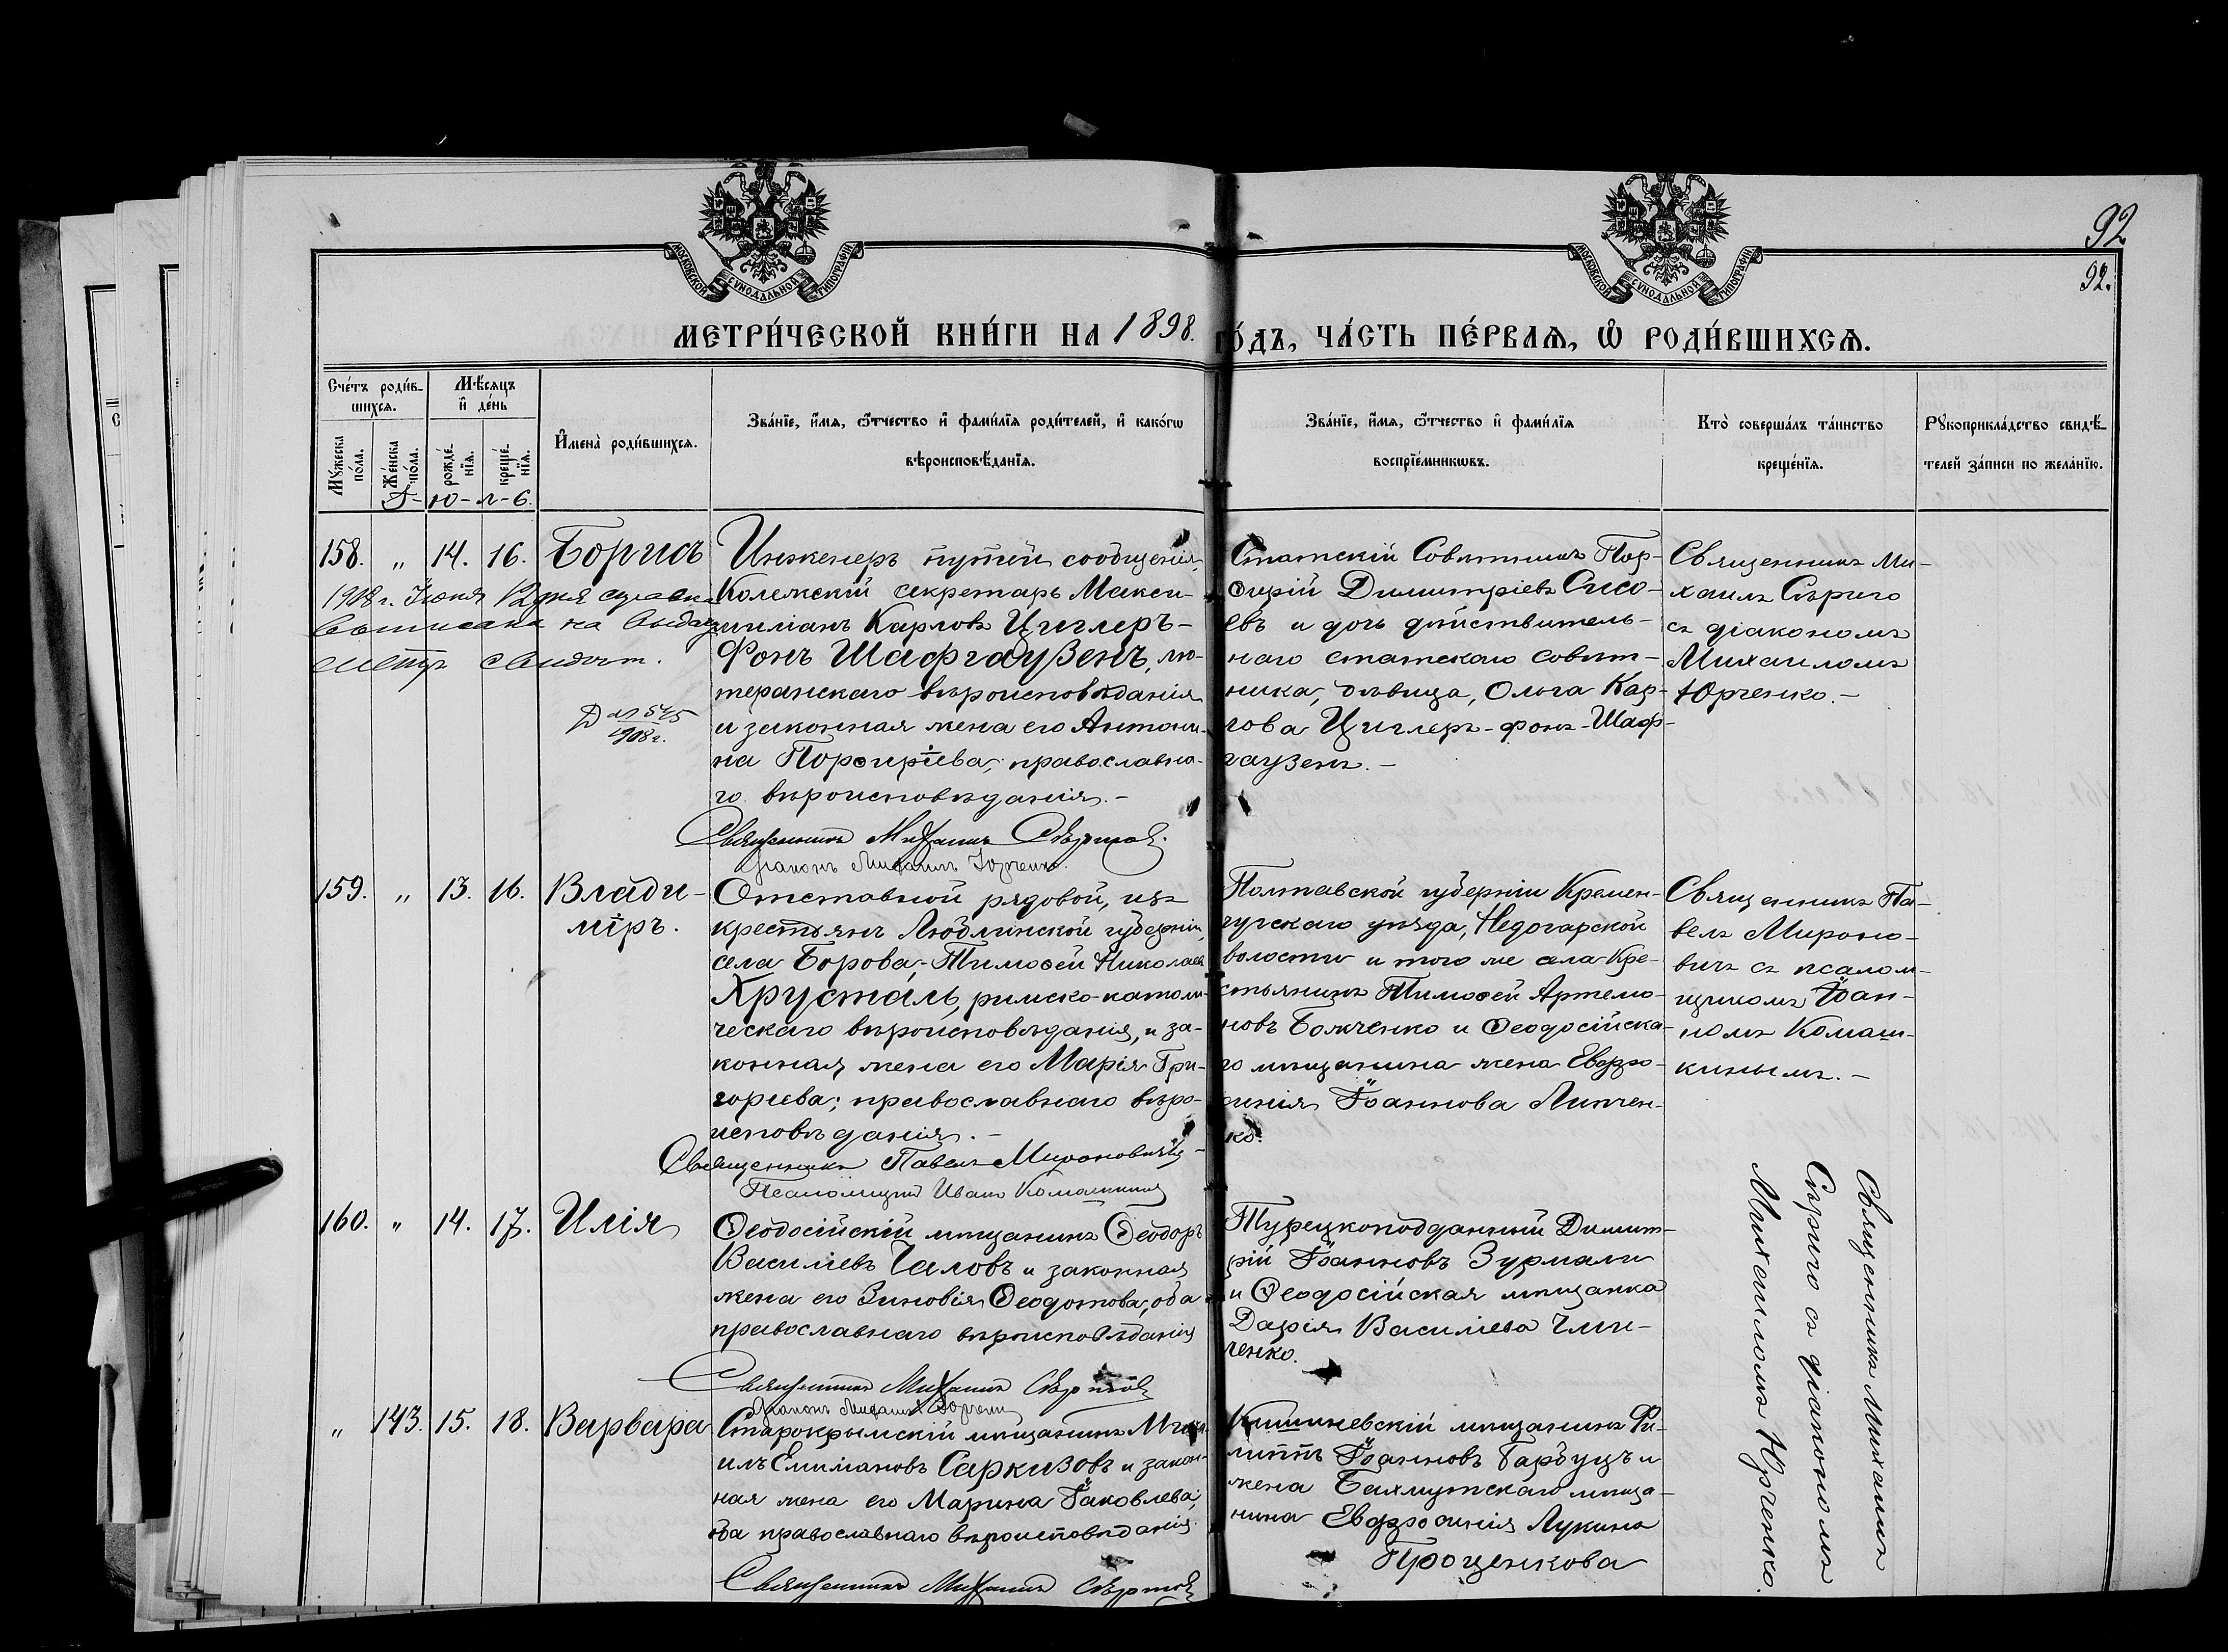 92
92.
МОСКОВСКОЙ СѴНОДАЛЬНОЙ ТИПОГРАФІИ
МОСКОВСКОЙ СѴНОДАЛЬНОЙ ТИПОГРАФІИ
МЕТРИ́ЧЕСКОЙ КНИ́ГИ НА 1898. ГО́ДЪ, ЧА́СТЬ ПЕ́РВАѦ, Ѡ҆ РОДИ́ВШИХСѦ.
Сче́тъ роди́в-
шихсѧ.
Мꙋ́жеска по́ла.
Же́нска по́ла.
Мѣ́сяцъ
и҆ де́нь
рожде́-
нїѧ.
креще́-
нїѧ.
І-ю-л-ь.
И҆мена̀ роди́вшихсѧ.
Зва́нїе, и҆́мѧ, ѻ҆́тчество и҆ фами́лїѧ роди́телей, и҆ како́гѡ
вѣроисповѣ́данїѧ.
Зва́нїе, и҆́мѧ, ѻ҆́тчество и҆ фами́лїѧ
воспрїе́мникѡвъ.
Кто̀ соверша́лъ та́инство
креще́нїѧ.
Рꙋкоприкла́дство свидѣ́-
телей за́писи по жела́нїю.
158. „ 14. 16. Борисъ
1908 г. Іюня 12 дня справка
выписана на выдачу
метр свидѣт.
545
1908 г.
Инженеръ путей сообщенія,
Колежскій секретарь Макси-
миліанъ Карловъ Циглеръ-
Фонъ Шафгаузенъ, лю-
теранскаго вѣроисповѣданія
и законная жена его Антони-
на Порѳиріева; православна-
го вѣроисповѣданія.-
Священникъ Михаилъ Сѣриговъ
Діаконъ Михаилъ Юрченко.
Статскій Совѣтникъ Пор-
ѳирій Димитріевъ Сысо-
евъ и дочь дѣйствитель-
наго статскаго совѣт-
ника, дѣвица, Ольга Кар-
лова Циглеръ-фонъ-Шаф-
гаузенъ.-
Священникъ Ми-
хаилъ Сѣриго
съ діакономъ
Михаиломъ
Юрченко.-
159. „ 13. 16. Влади-
міръ.
Отставной рядовой, изъ
крестьянъ Люблинской губерніи,
села Борова,-Тимоѳей Николаев
Хрусталь, римско-католи-
ческаго вѣроисповѣданія, и за-
конная жена его Марія Гри-
горіева; православнаго вѣро-
исповѣданія.-
Священникъ Павелъ Мироновичъ-
Псаломщикъ Иванъ Комашкинъ
Полтавской губерніи Кремен-
чугскаго уѣзда, Недогарской
волости и того же села-Кре-
стьянинъ Тимоѳей Артемо-
новъ Божченко и Ѳеодосійска-
го мѣщанина жена Евфро-
синія Іоаннова Липчен-
ко.
Священникъ Па-
велъ Мироно-
вичъ съ псалом-
щикомъ Іоан-
номъ Комаш-
кинымъ.-
160. „ 14. 17. Илія
Ѳеодосійскій мѣщанинъ Ѳеодоръ
Василіевъ Чаловъ и законная
жена его Зиновія Ѳеодотова; оба
православнаго вѣроисповѣданія
Священникъ Михаилъ Сѣриговъ
Діаконъ Михаилъ Юрченко
Турецкоподданный Димит-
рій Іоанновъ Зурмали
и Ѳеодосійская мѣщанка
Дарія Василіева
ченко.
Священникъ Михаилъ
Сѣриго съ діакономъ
Михаиломъ Юрченко.
„ 143. 15. 18. Варвара
Старокрымскій мѣщанинъ Миха-
илъ Емиліановъ Саркизовъ и закон-
ная жена его Марина Іаковлева;
оба православнаго вѣроисповѣданія.
Священникъ Михаилъ Сѣриговъ
Кишиневскій мѣщанинъ Фи-
липпъ Іоанновъ Гарбуцъ и
жена Бахмутскаго мѣща-
нина Евфросинія Лукина
Проценкова